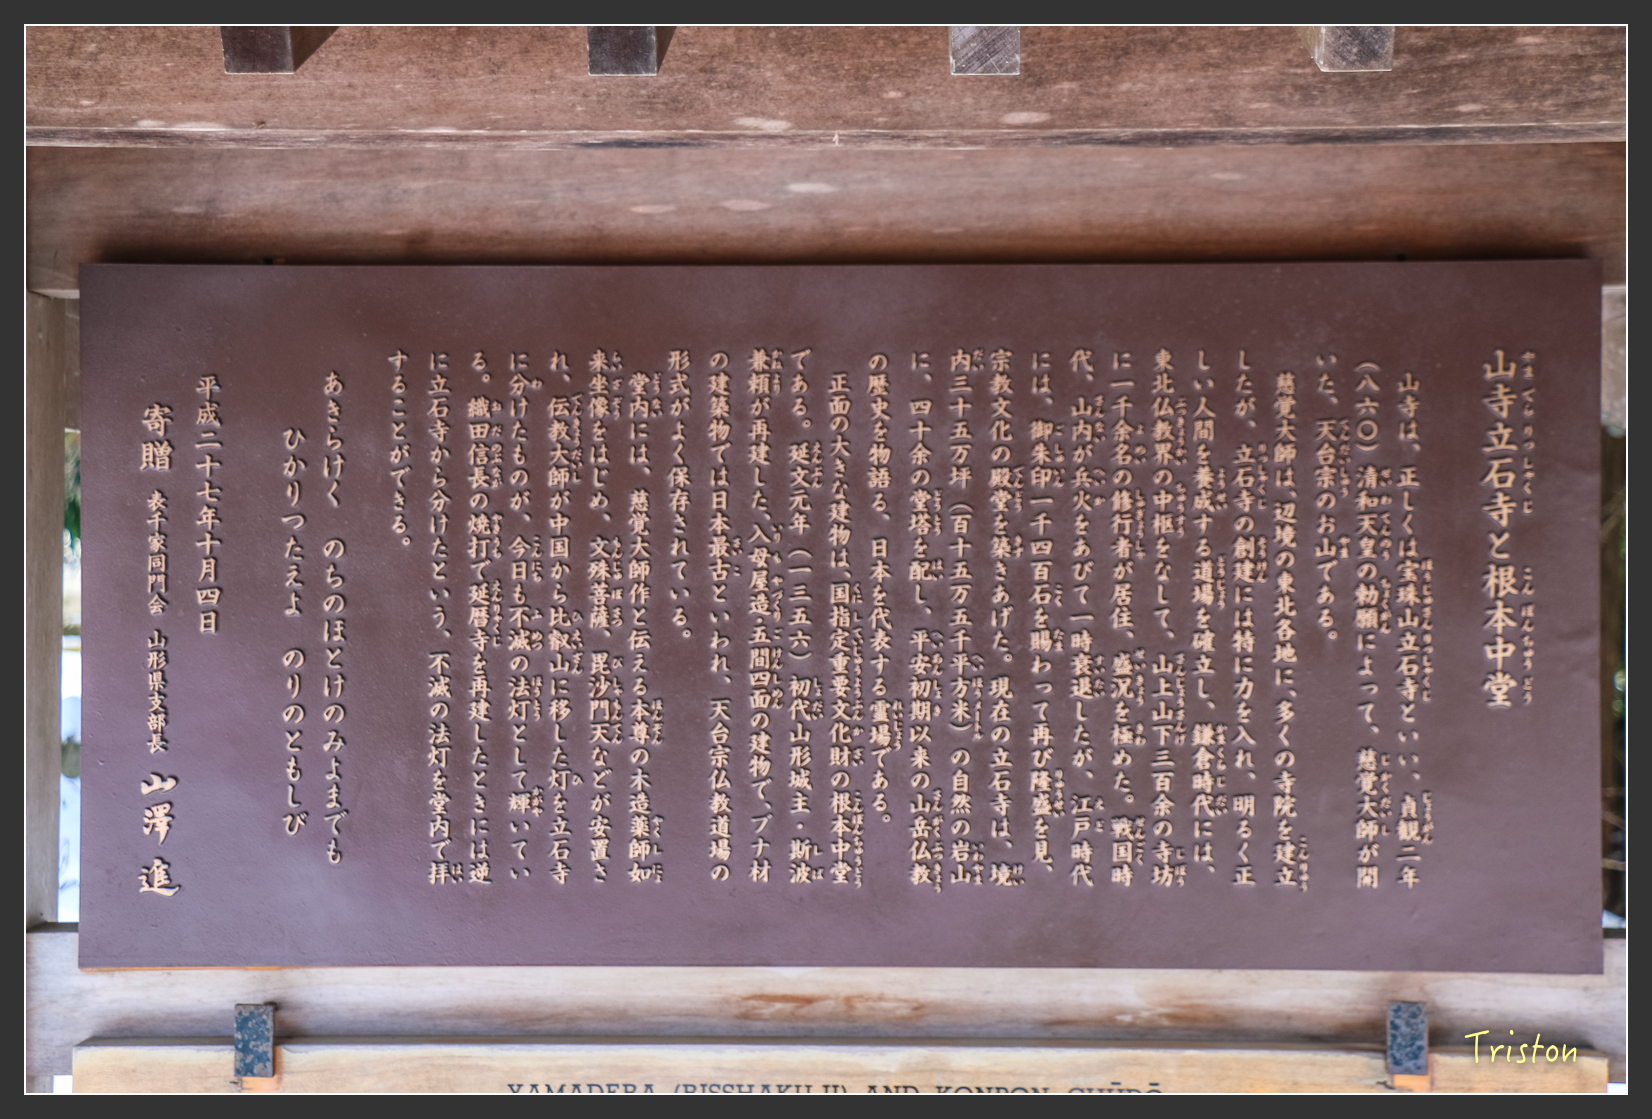 山寺立石寺と根本中堂
山寺は、正しくは宝珠山立石寺といい、貞観二年
（八六〇）清和天皇の勅願によって、慈覚大師が開
いた、天台宗のお山である。
慈覚大師は、辺境の東北各地に、多くの寺院を建立
したが、立石寺の創建には特に力を入れ、明るく正
しい人間を養成する道場を確立し、鎌倉時代には、
東北仏教界の中枢をなして、山上山下三百余の寺坊
に一千余名の修行者が居住、盛況を極めた。戦国時
代、山内が兵火をあびて一時衰退したが、江戸時代
には、御朱印一千四百石を賜わって再び隆盛を見、
宗教文化の殿堂を築きあげた。現在の立石寺は、境
内三十五万坪（百十五万五千平方米）の自然の岩山
に、四十余の堂塔を配し、平安初期以来の山岳仏教
の歴史を物語る、日本を代表する霊場である。
正面の大きな建物は、国指定重要文化財の根本中堂
である。延文元年（一三五六）初代山形城主・斯波
兼頼が再建した、入母屋造・五間四面の建物で、ブナ材
の建築物では日本最古といわれ、天台宗仏教道場の
形式がよく保存されている。
堂内には、慈覚大師作と伝える本尊の木造薬師如
来坐像をはじめ、文殊菩薩、毘沙門天などが安置さ
れ、伝教大師が中国から比叡山に移した灯を立石寺
に分けたものが、今日も不滅の法灯として輝いてい
る。織田信長の焼打で延暦寺を再建したときには逆
に立石寺から分けたという、不滅の法灯を堂内で拝
することができる。
あきらけく　のちのほとけのみよまでも
ひかりつたえよ　のりのともしび
平成二十七年十月四日
寄贈　表千家同門会　山形県支部長　山澤　進
YAMADERA (RISSHAKUJI) AND KONPON CHŪDŌ
Triston